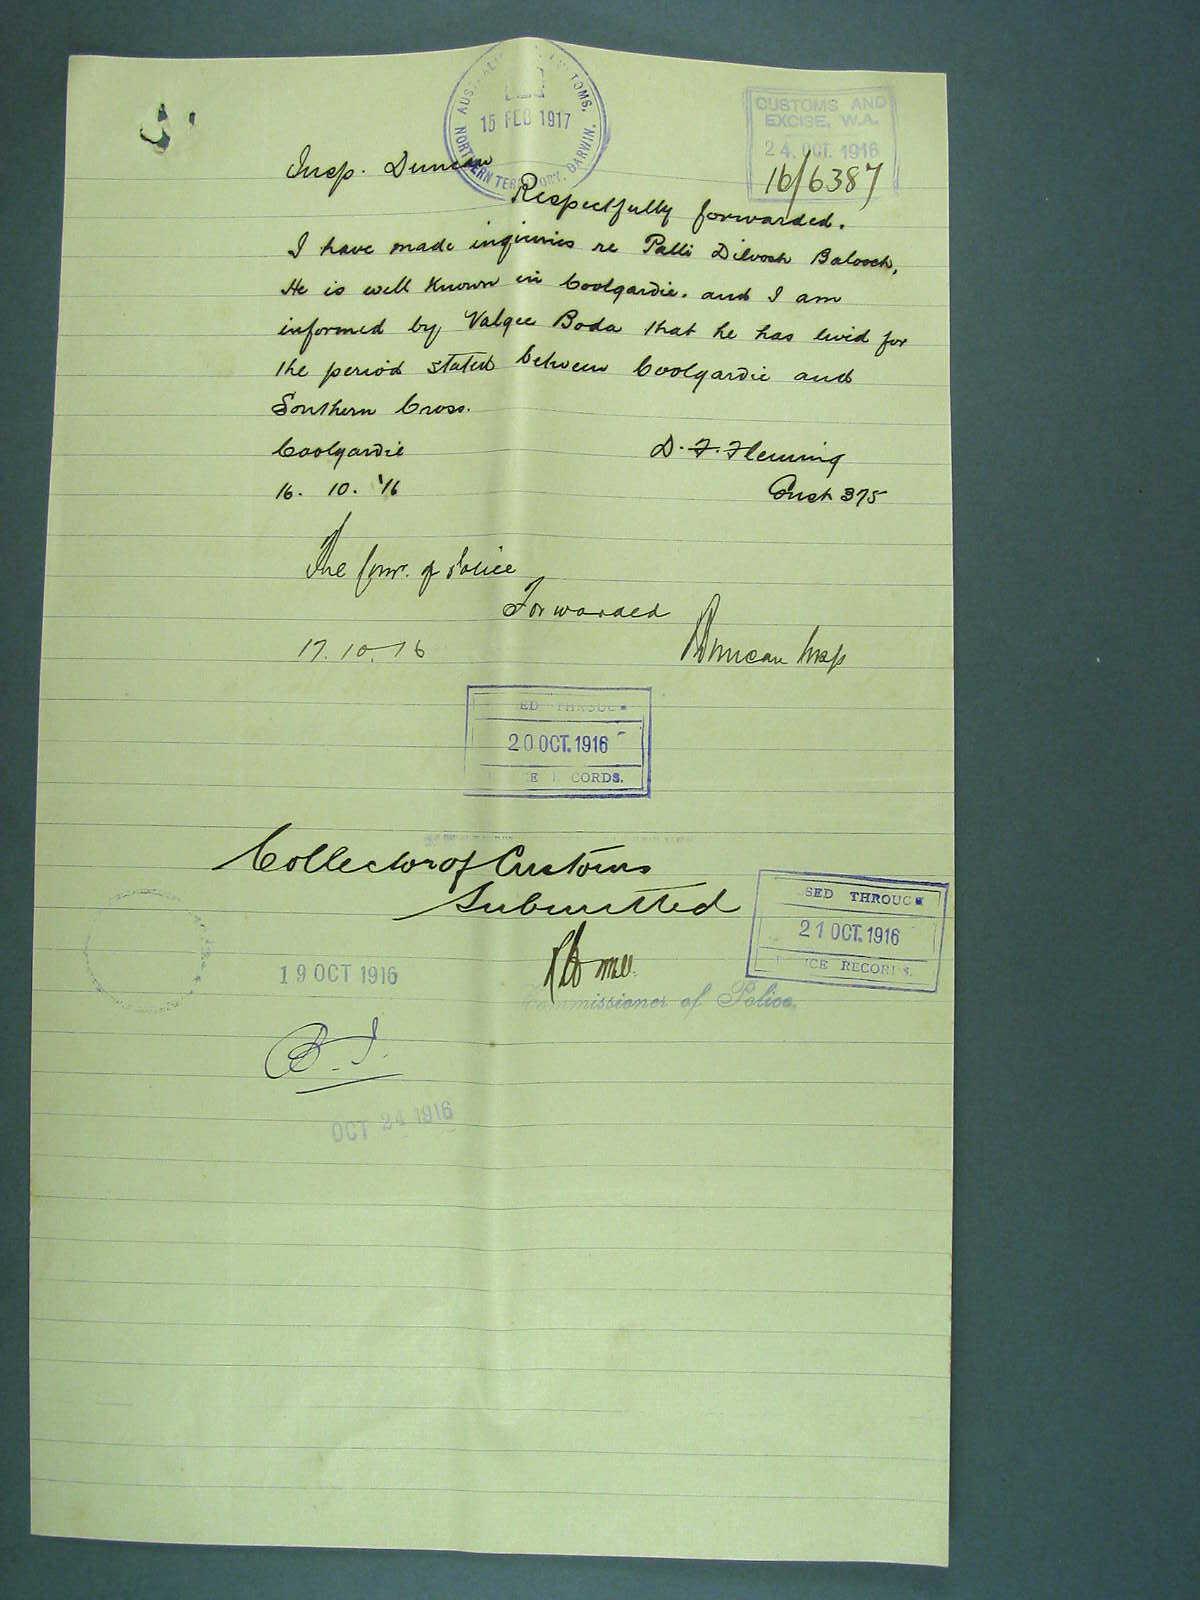 AUSTRALIAN CUSTOMS.
15 FEB 1917
NORTHERN TERRITORY, DARWIN.
CUSTOMS AND
EXCISE, W.A.
24. OCT. 1916
16/6387
Insp. Duncan
Respectfully forwarded.
I have made inquiries re Palli Dilvosh Baloosh,
He is well Known in Coolgardie. and I am
informed by Valgee Boda that he has livid for
the period stated between Coolgardie and
Southern Cross.
Coolgardie
D. F. Fleming
16. 10. '16
Const 375
The Comr. of Police
Forwarded
17.10.16
Duncan Insp
ED THROUG
20 OCT. 1916
CE RECORDS.
Collector of Customs
Submitted
SED THROUG
21 OCT. 1916
ICE RECORDS.
19 OCT 1916
Commissioner of Police.
B.I.
OCT 24 1916